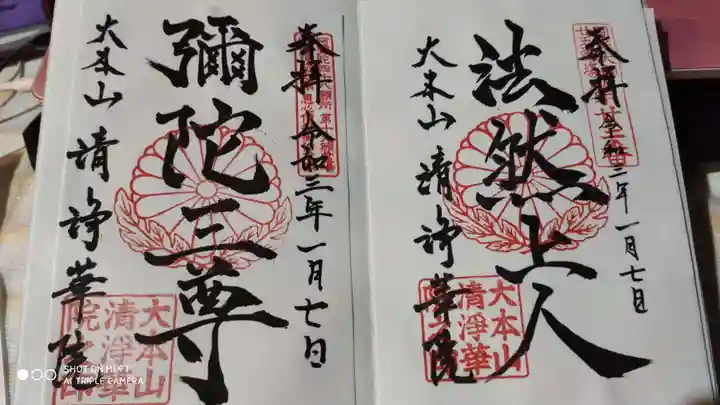 奉拝
令和三年一月七日
彌陀三尊
大本山 清浄華院
大本山
清浄華
院之印
奉拝
令和三年一月七日
法然上人
大本山 清浄華院
大本山
清浄華
院之印
SHOT ON MI 9T
AI TRIPLE CAMERA